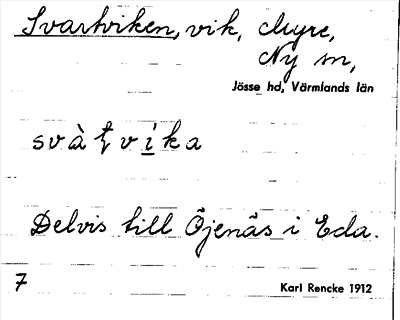 Svartviken, vik, Myre,
Ny sn,
Jösse hd, Värmlands län
svàt̨vi̲ka
Delvis till Öjenäs i Eda.
7
Karl Rencke 1912